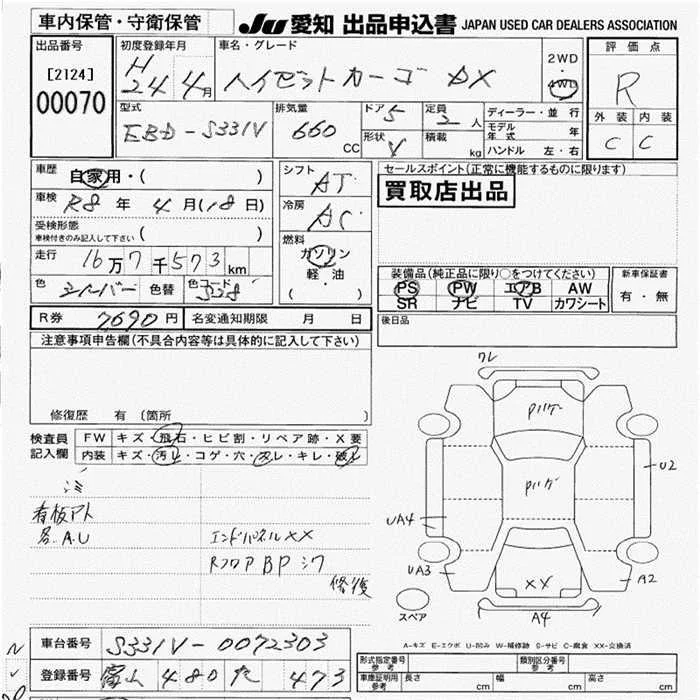 車内保管・守衛保管
JU 愛知 出品申込書 JAPAN USED CAR DEALERS ASSOCIATION
出品番号
[2124]
00070
初度登録年月
H 24 4月
車名・グレード
ハイゼットカーゴ DX
2WD
・
4WD
評価点
R
外装 内装
C C
型式
EBD-S331V
排気量
660 CC
ドア 5
形状 V
定員 2人
積載 kg
ディーラー・並行
モデル年式 年
ハンドル 左・右
車歴 自家用・( )
車検 R8年 4月(18日)
受検形態
車検付きのみ記入して下さい ( )
走行 16万7千573km
色 シルバー 色替 色コード S28
シフト AT
冷房 AC
燃料
ガソリン
軽・油
( )
セールスポイント(正常に機能するものに限ります)
買取店出品
装備品(純正品に限り○をつけてください)
PS PW エアB AW
SR ナビ TV カワシート
新車保証書
有・無
R券 7690円 名変通知期限 月 日
後日品
注意事項申告欄(不具合内容等は具体的に記入して下さい)
修復歴 有 (箇所 )
検査員
記入欄
FW キズ・飛石・ヒビ割・リペア跡・X要
内装 キズ・汚レ・コゲ・穴・スレ・キレ・破レ
看板アト
多.A.U
エンドパネルXX
RフロアBPシワ
修復
ワレ
Pハゲ
Pハゲ
U2
UA4
UA3
XX
A2
A4
スペア
A-キズ E-エクボ U-凹み W-補修跡 S-サビ C-腐食 XX-交換済
車台番号 S331V-0072303
登録番号 富山 480 た 473
形式指定番号 参考
類別区分番号 参考
車庫証明用 参考 長さ cm 幅 cm 高さ cm